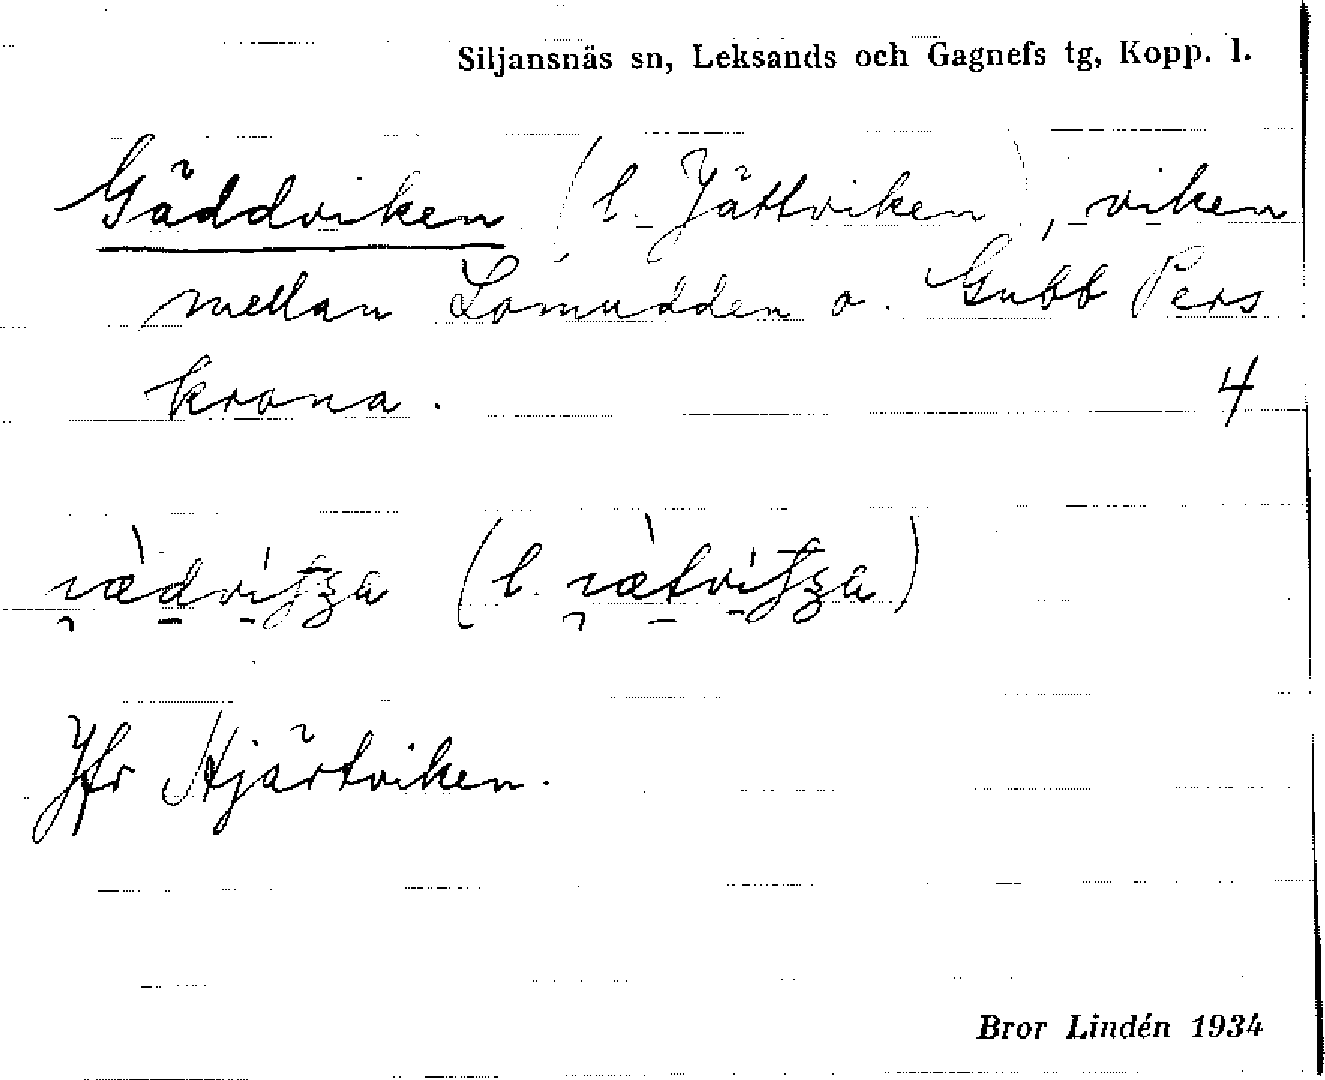 Siljansnäs sn, Leksands och Gagnefs tg, Kopp. l.
Gäddviken (l. Jättviken), viken
mellan Lomudden o. Gubb Pers
krona. 4
(l.
Jfr Hjärtviken.
Bror Lindén 1934